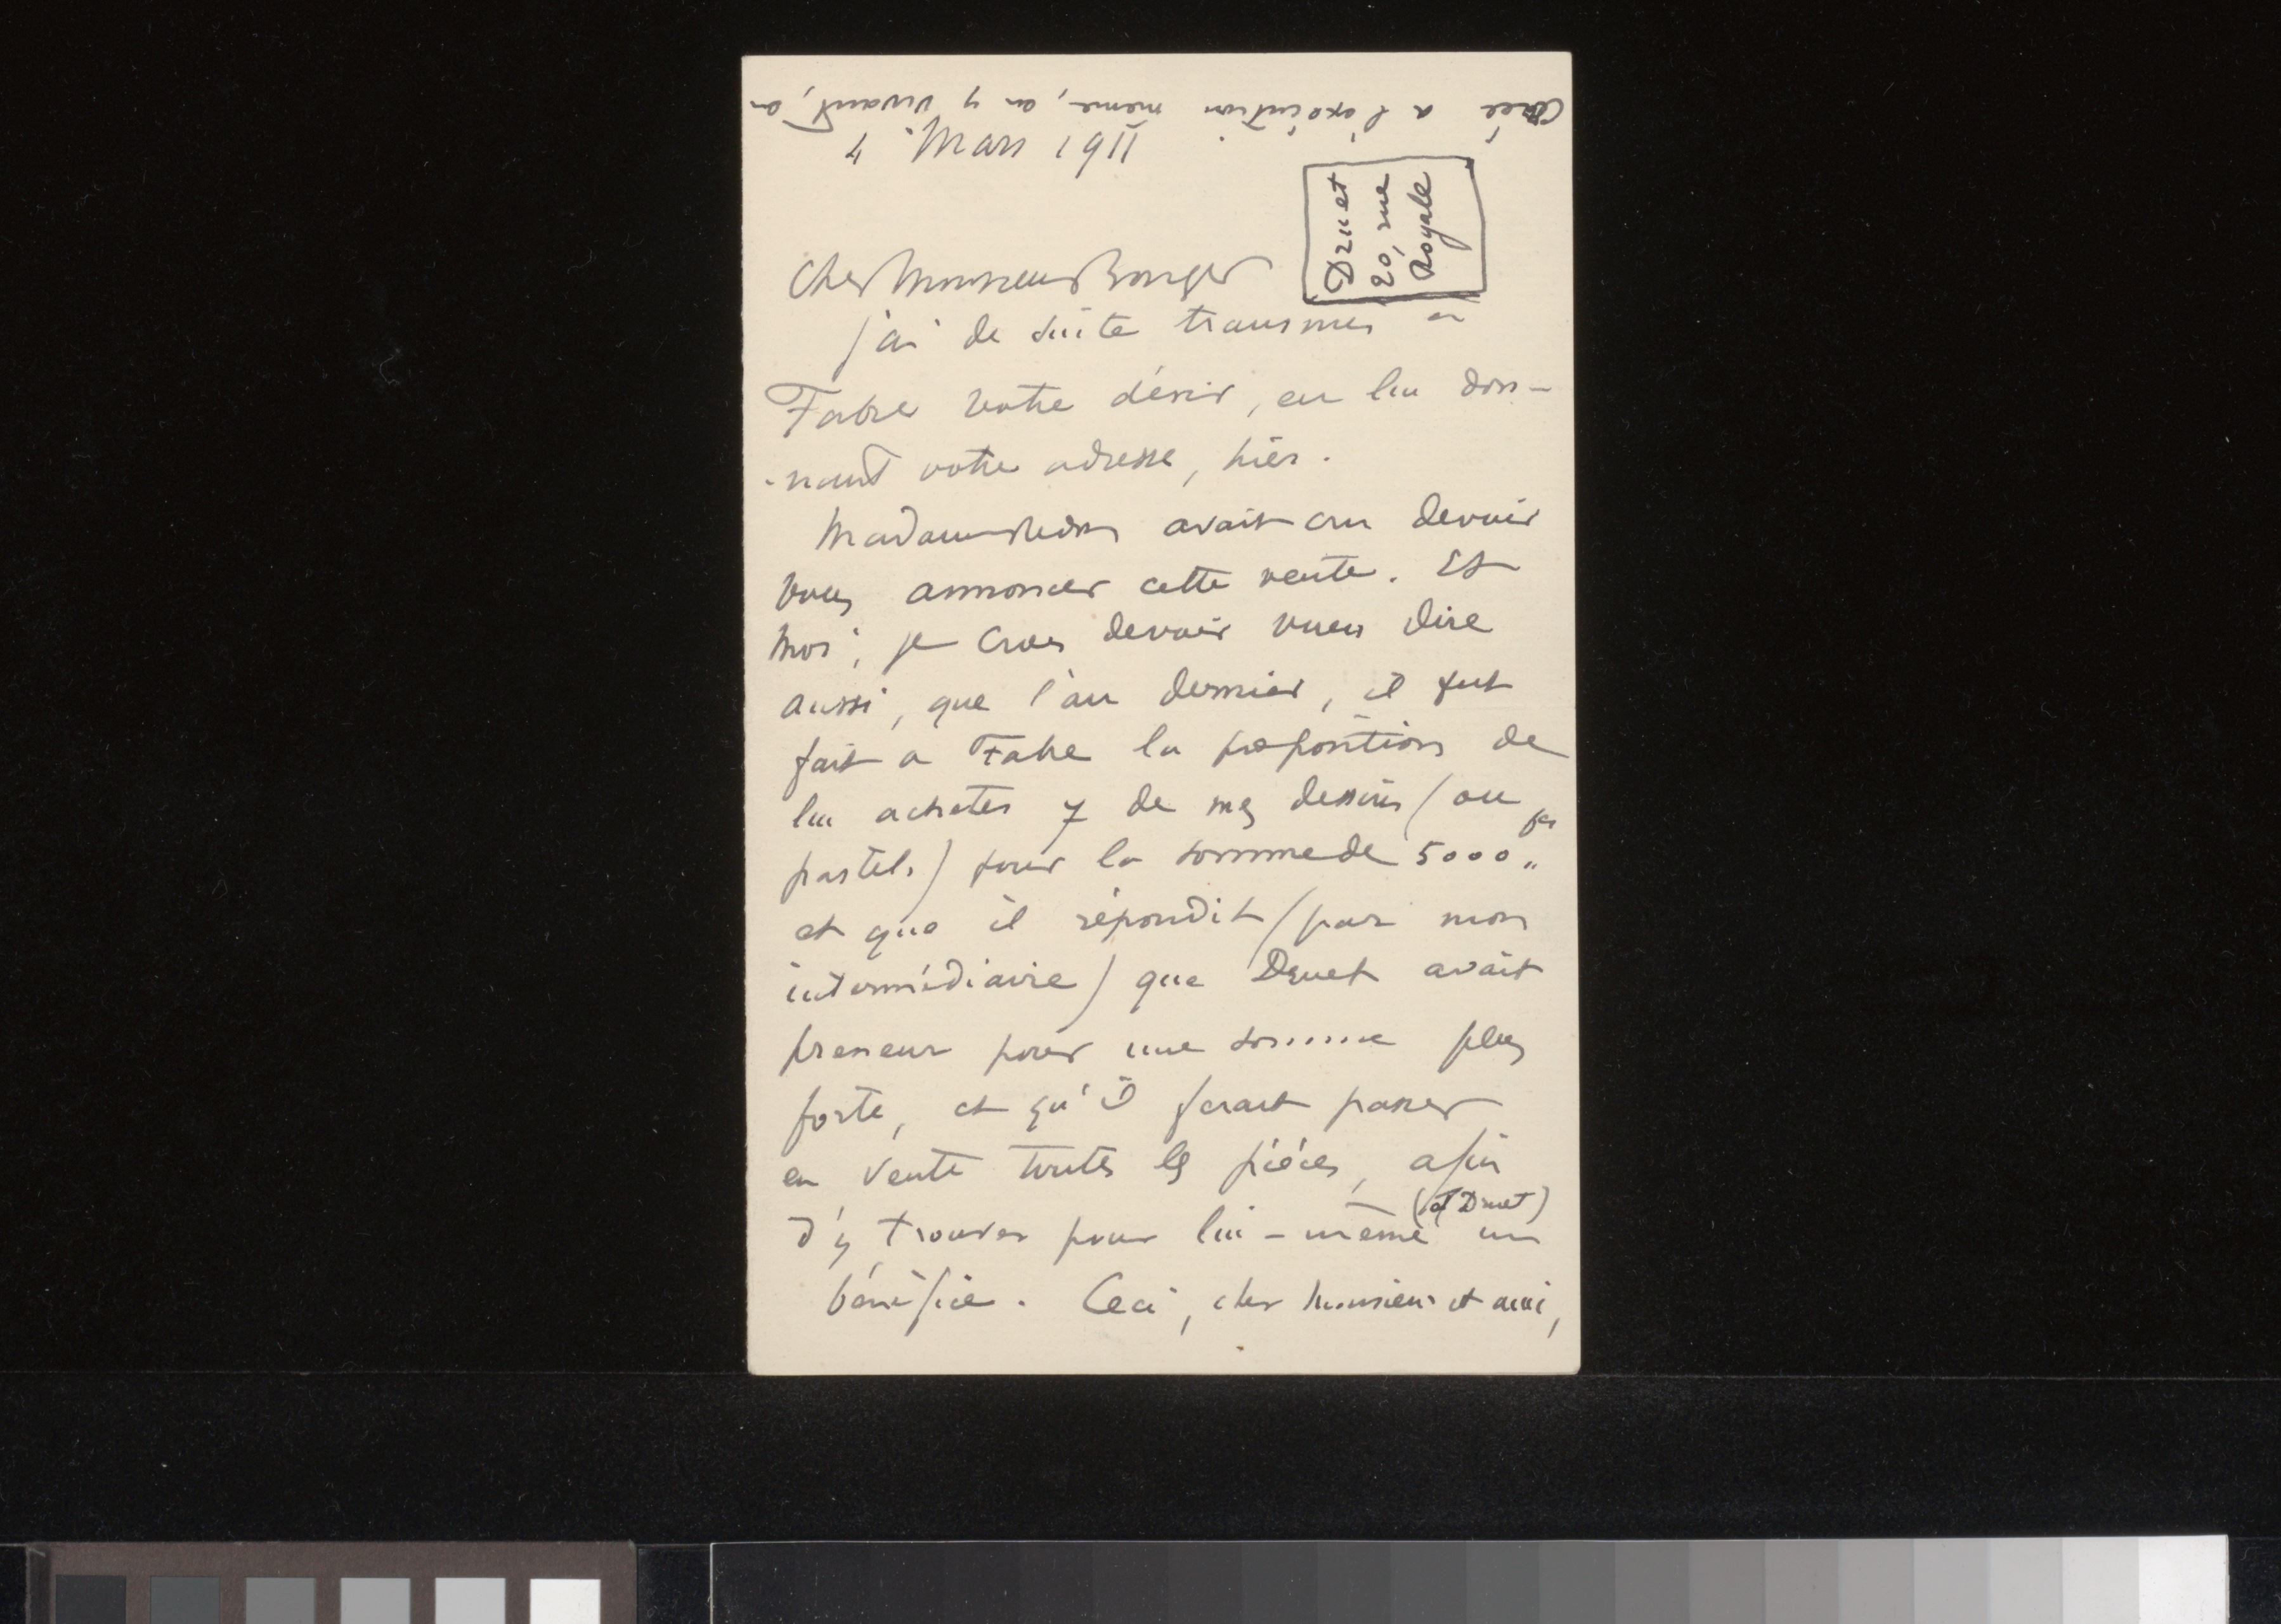 créé a l'exécution même, en y vivant, on
4 Mars 1911
Druet
20, rue
Royale
Cher Monsieur Bonger
j'ai de suite transmis à
Fabre votre désir, en lui don-
-nant votre adresse, hier.
Madame Redon avait cru devoir
vous annoncer cette vente. Et
moi, je crois devoir vous dire
aussi, que l'an dernier, il fut
fait a Fabre la proposition de
lui acheter 7 de mes dessins (ou
pastels) pour la somme de 5000 frs
et que il répondit (par mon
intermédiaire) que Druet avait
preneur pour une somme plus
forte, et qu'il ferait passer
en vente toutes les pièces, afin
d'y trouver pour lui-même (et Druet) un
bénéfice. Ceci, cher Monsieur et ami,